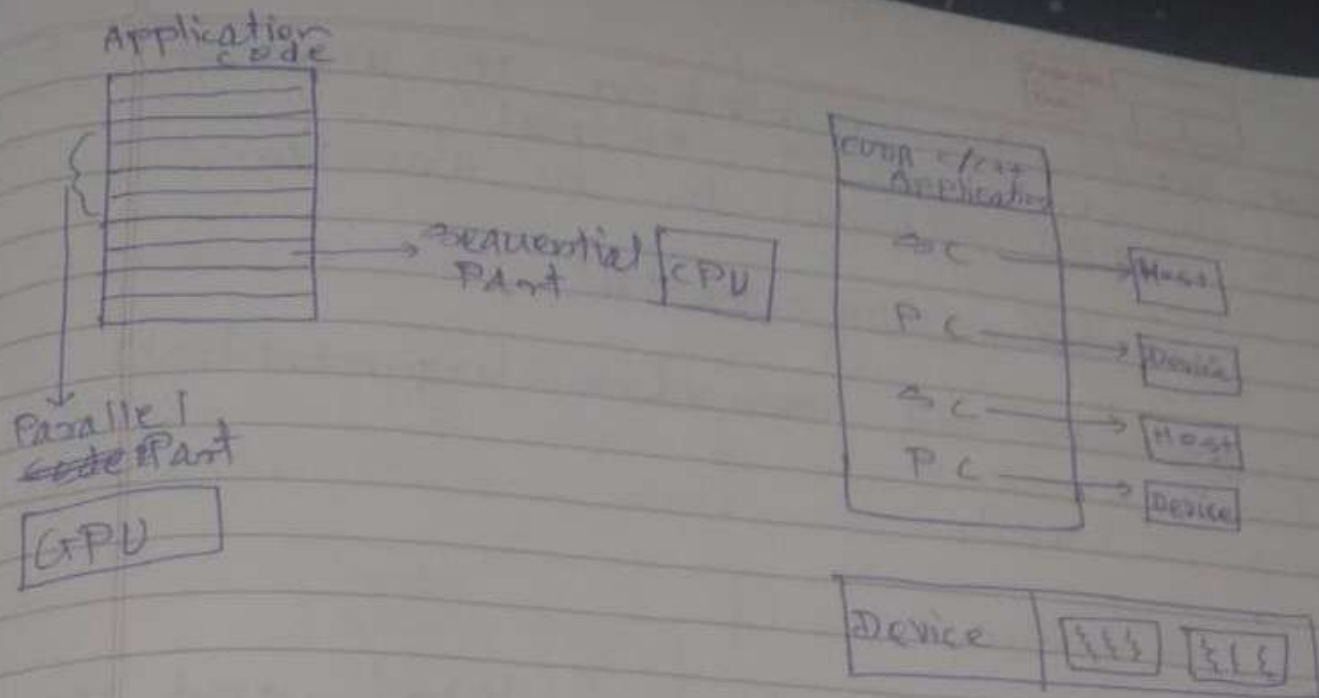 Application
code
Sequential
Part
CPU
Parallel
Part
GPU
CUDA C/C++
Application
SC
Host
PC
Device
SC
Host
PC
Device
Device